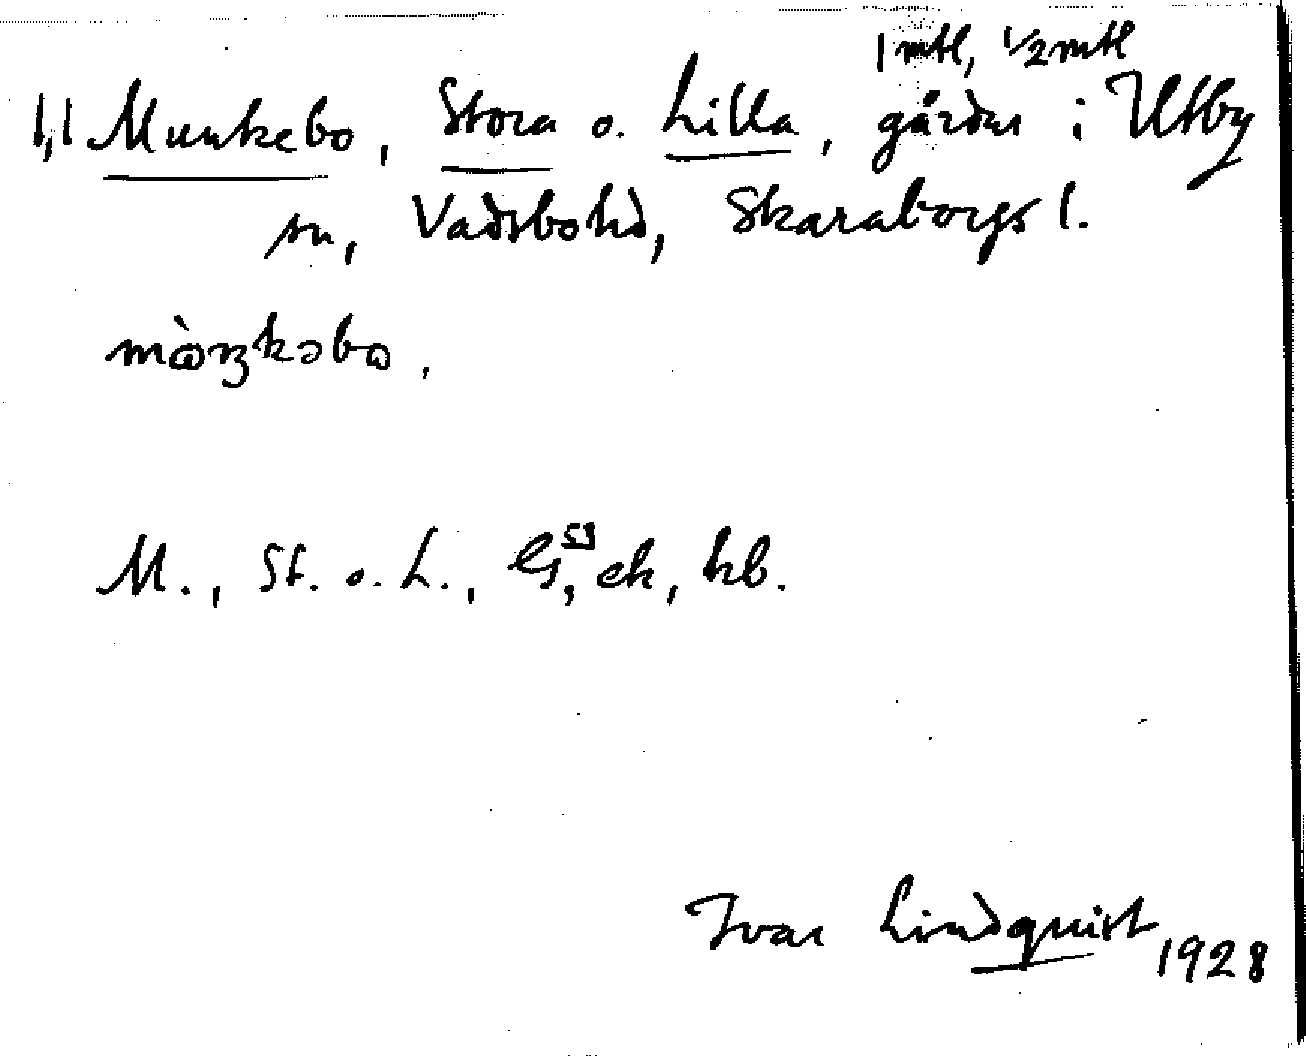 1 mtl, 1/2 mtl
1,1 Munkebo, Stora o. Lilla, gårdar i Utby
sn, Vadsbo hd, Skaraborgs l.
M., St. o. L., G53, ek, hb.
Ivar Lindquist 1928